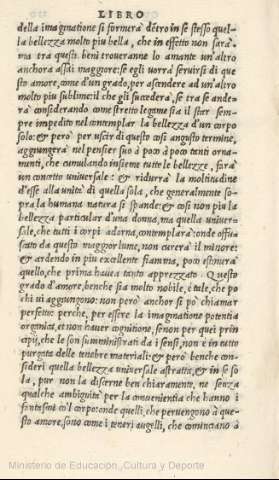 LIBRO
della imaginatione si formerà dẽtro in se stesso quel-
la bellezza molto piu bella, che in effetto non sarà.
ma tra questi beni troueranne lo amante un'altro
anchora assai maggiore: se egli uorrà seruirsi di que
sto amore, come d'un grado, per ascendere ad un'altro
molto piu sublime: il che gli succederà, se tra se ande-
rà considerando, come stretto legame sia il star sem-
pre impedito nel contemplar la bellezza d'un corpo
solo: & però per uscir di questo cosi angusto termine,
aggiungerà nel pensier suo à poco à poco tanti orna-
menti, che cumulando insieme tutte le bellezze, farà
un concetto uniuersale: & ridurrà la moltitudine
d'esse alla unità di quella sola, che generalmente so-
pra la humana natura si spande: & cosi non piu la
bellezza particular d'una donna, ma quella uniuer-
sale, che tutti i corpi adorna, contemplarà: onde offu
scato da questo maggior lume, non curerà il minore:
& ardendo in piu eccellente fiamma, poco estimerà
quello, che prima hauea tanto apprezzato. Questo
grado d'amore, benche sia molto nobile, è tale, che po
chi ui aggiungono: non però anchor si po chiamar
perfetto: perche, per essere la imaginatione potentia
organica, et non hauer cognitione, se non per quei prin
cipij, che le son summinestrati da i sensi, non è in tutto
purgata delle tenebre materiali: & però benche con-
sideri quella bellezza uniuersale astratta, & in se so
la, pur non la discerne ben chiaramente, ne senza
qualche ambiguità per la conuenientia che hanno i
fantasmi co'l corpo: onde quelli, che peruengono à que-
sto amore, sono come i teneri augelli, che cominciano à
Ministerio de Educación, Cultura y Deporte